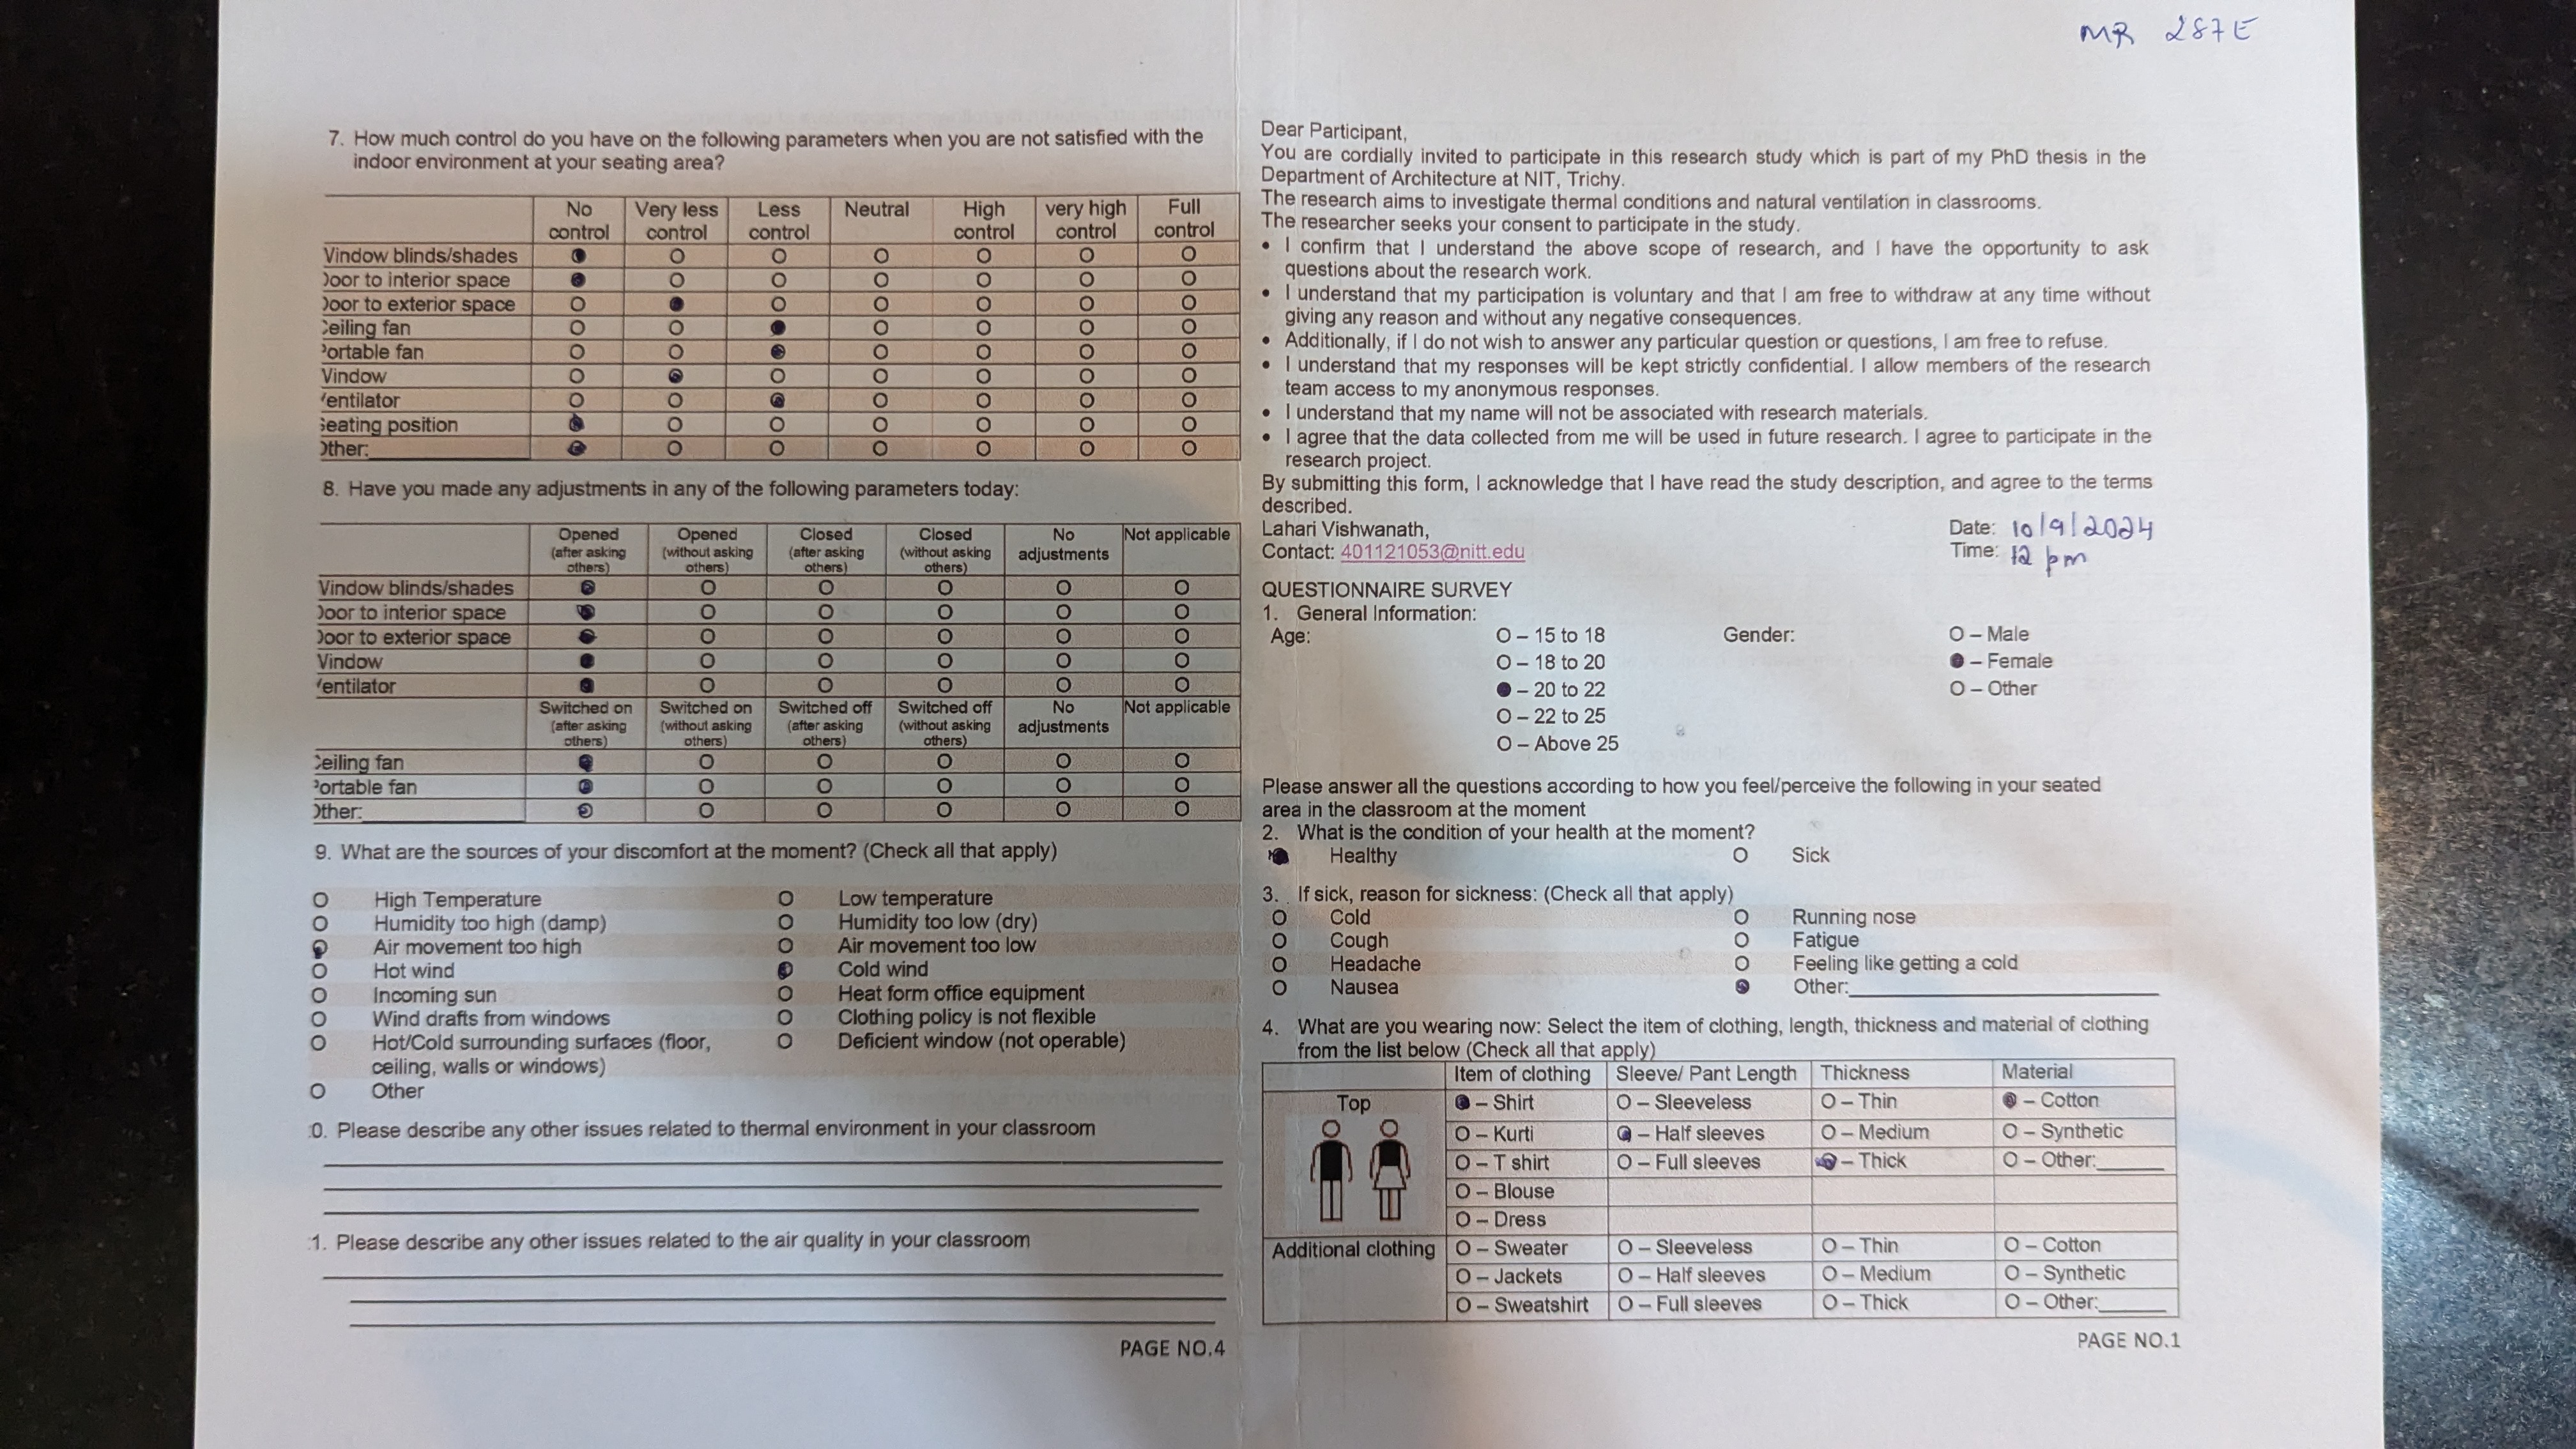 MR 287E
7. How much control do you have on the following parameters when you are not satisfied with the
indoor environment at your seating area?
No control Very less control Less control Neutral High control very high control Full control
Vindow blinds/shades ● O O O O O O
Door to interior space ● O O O O O O
Door to exterior space O ● O O O O O
Ceiling fan O O ● O O O O
Portable fan O O ● O O O O
Vindow O ● O O O O O
Ventilator O O ● O O O O
Seating position ● O O O O O O
Other: ● O O O O O O
8. Have you made any adjustments in any of the following parameters today:
Opened (after asking others) Opened (without asking others) Closed (after asking others) Closed (without asking others) No adjustments Not applicable
Vindow blinds/shades ● O O O O O
Door to interior space ● O O O O O
Door to exterior space ● O O O O O
Vindow ● O O O O O
Ventilator ● O O O O O
Switched on (after asking others) Switched on (without asking others) Switched off (after asking others) Switched off (without asking others) No adjustments Not applicable
Ceiling fan ● O O O O O
Portable fan ● O O O O O
Other: ● O O O O O
9. What are the sources of your discomfort at the moment? (Check all that apply)
O High Temperature O Low temperature
O Humidity too high (damp) O Humidity too low (dry)
● Air movement too high O Air movement too low
O Hot wind ● Cold wind
O Incoming sun O Heat form office equipment
O Wind drafts from windows O Clothing policy is not flexible
O Hot/Cold surrounding surfaces (floor, O Deficient window (not operable)
ceiling, walls or windows)
O Other
0. Please describe any other issues related to thermal environment in your classroom
1. Please describe any other issues related to the air quality in your classroom
PAGE NO.4
Dear Participant,
You are cordially invited to participate in this research study which is part of my PhD thesis in the
Department of Architecture at NIT, Trichy.
The research aims to investigate thermal conditions and natural ventilation in classrooms.
The researcher seeks your consent to participate in the study.
• I confirm that I understand the above scope of research, and I have the opportunity to ask
questions about the research work.
• I understand that my participation is voluntary and that I am free to withdraw at any time without
giving any reason and without any negative consequences.
• Additionally, if I do not wish to answer any particular question or questions, I am free to refuse.
• I understand that my responses will be kept strictly confidential. I allow members of the research
team access to my anonymous responses.
• I understand that my name will not be associated with research materials.
• I agree that the data collected from me will be used in future research. I agree to participate in the
research project.
By submitting this form, I acknowledge that I have read the study description, and agree to the terms
described.
Lahari Vishwanath, Date: 10/9/2024
Contact: 401121053@nitt.edu Time: 12 pm
QUESTIONNAIRE SURVEY
1. General Information:
Age: O – 15 to 18 Gender: O – Male
O – 18 to 20 ● – Female
● – 20 to 22 O – Other
O – 22 to 25
O – Above 25
Please answer all the questions according to how you feel/perceive the following in your seated
area in the classroom at the moment
2. What is the condition of your health at the moment?
● Healthy O Sick
3. If sick, reason for sickness: (Check all that apply)
O Cold O Running nose
O Cough O Fatigue
O Headache O Feeling like getting a cold
O Nausea ● Other:
4. What are you wearing now: Select the item of clothing, length, thickness and material of clothing
from the list below (Check all that apply)
Item of clothing Sleeve/ Pant Length Thickness Material
Top ● – Shirt O – Sleeveless O – Thin ● – Cotton
O – Kurti ● – Half sleeves O – Medium O – Synthetic
O – T shirt O – Full sleeves ● – Thick O – Other:
O – Blouse
O – Dress
Additional clothing O – Sweater O – Sleeveless O – Thin O – Cotton
O – Jackets O – Half sleeves O – Medium O – Synthetic
O – Sweatshirt O – Full sleeves O – Thick O – Other:
PAGE NO.1